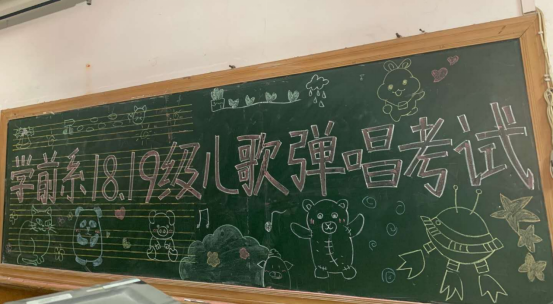 学前系18.19级儿歌弹唱考试